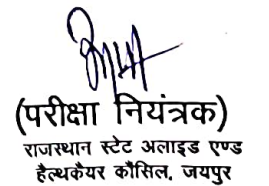 (परीक्षा नियंत्रक)
राजस्थान स्टेट अलाइड एण्ड
हैल्थकैयर कौंसिल, जयपुर